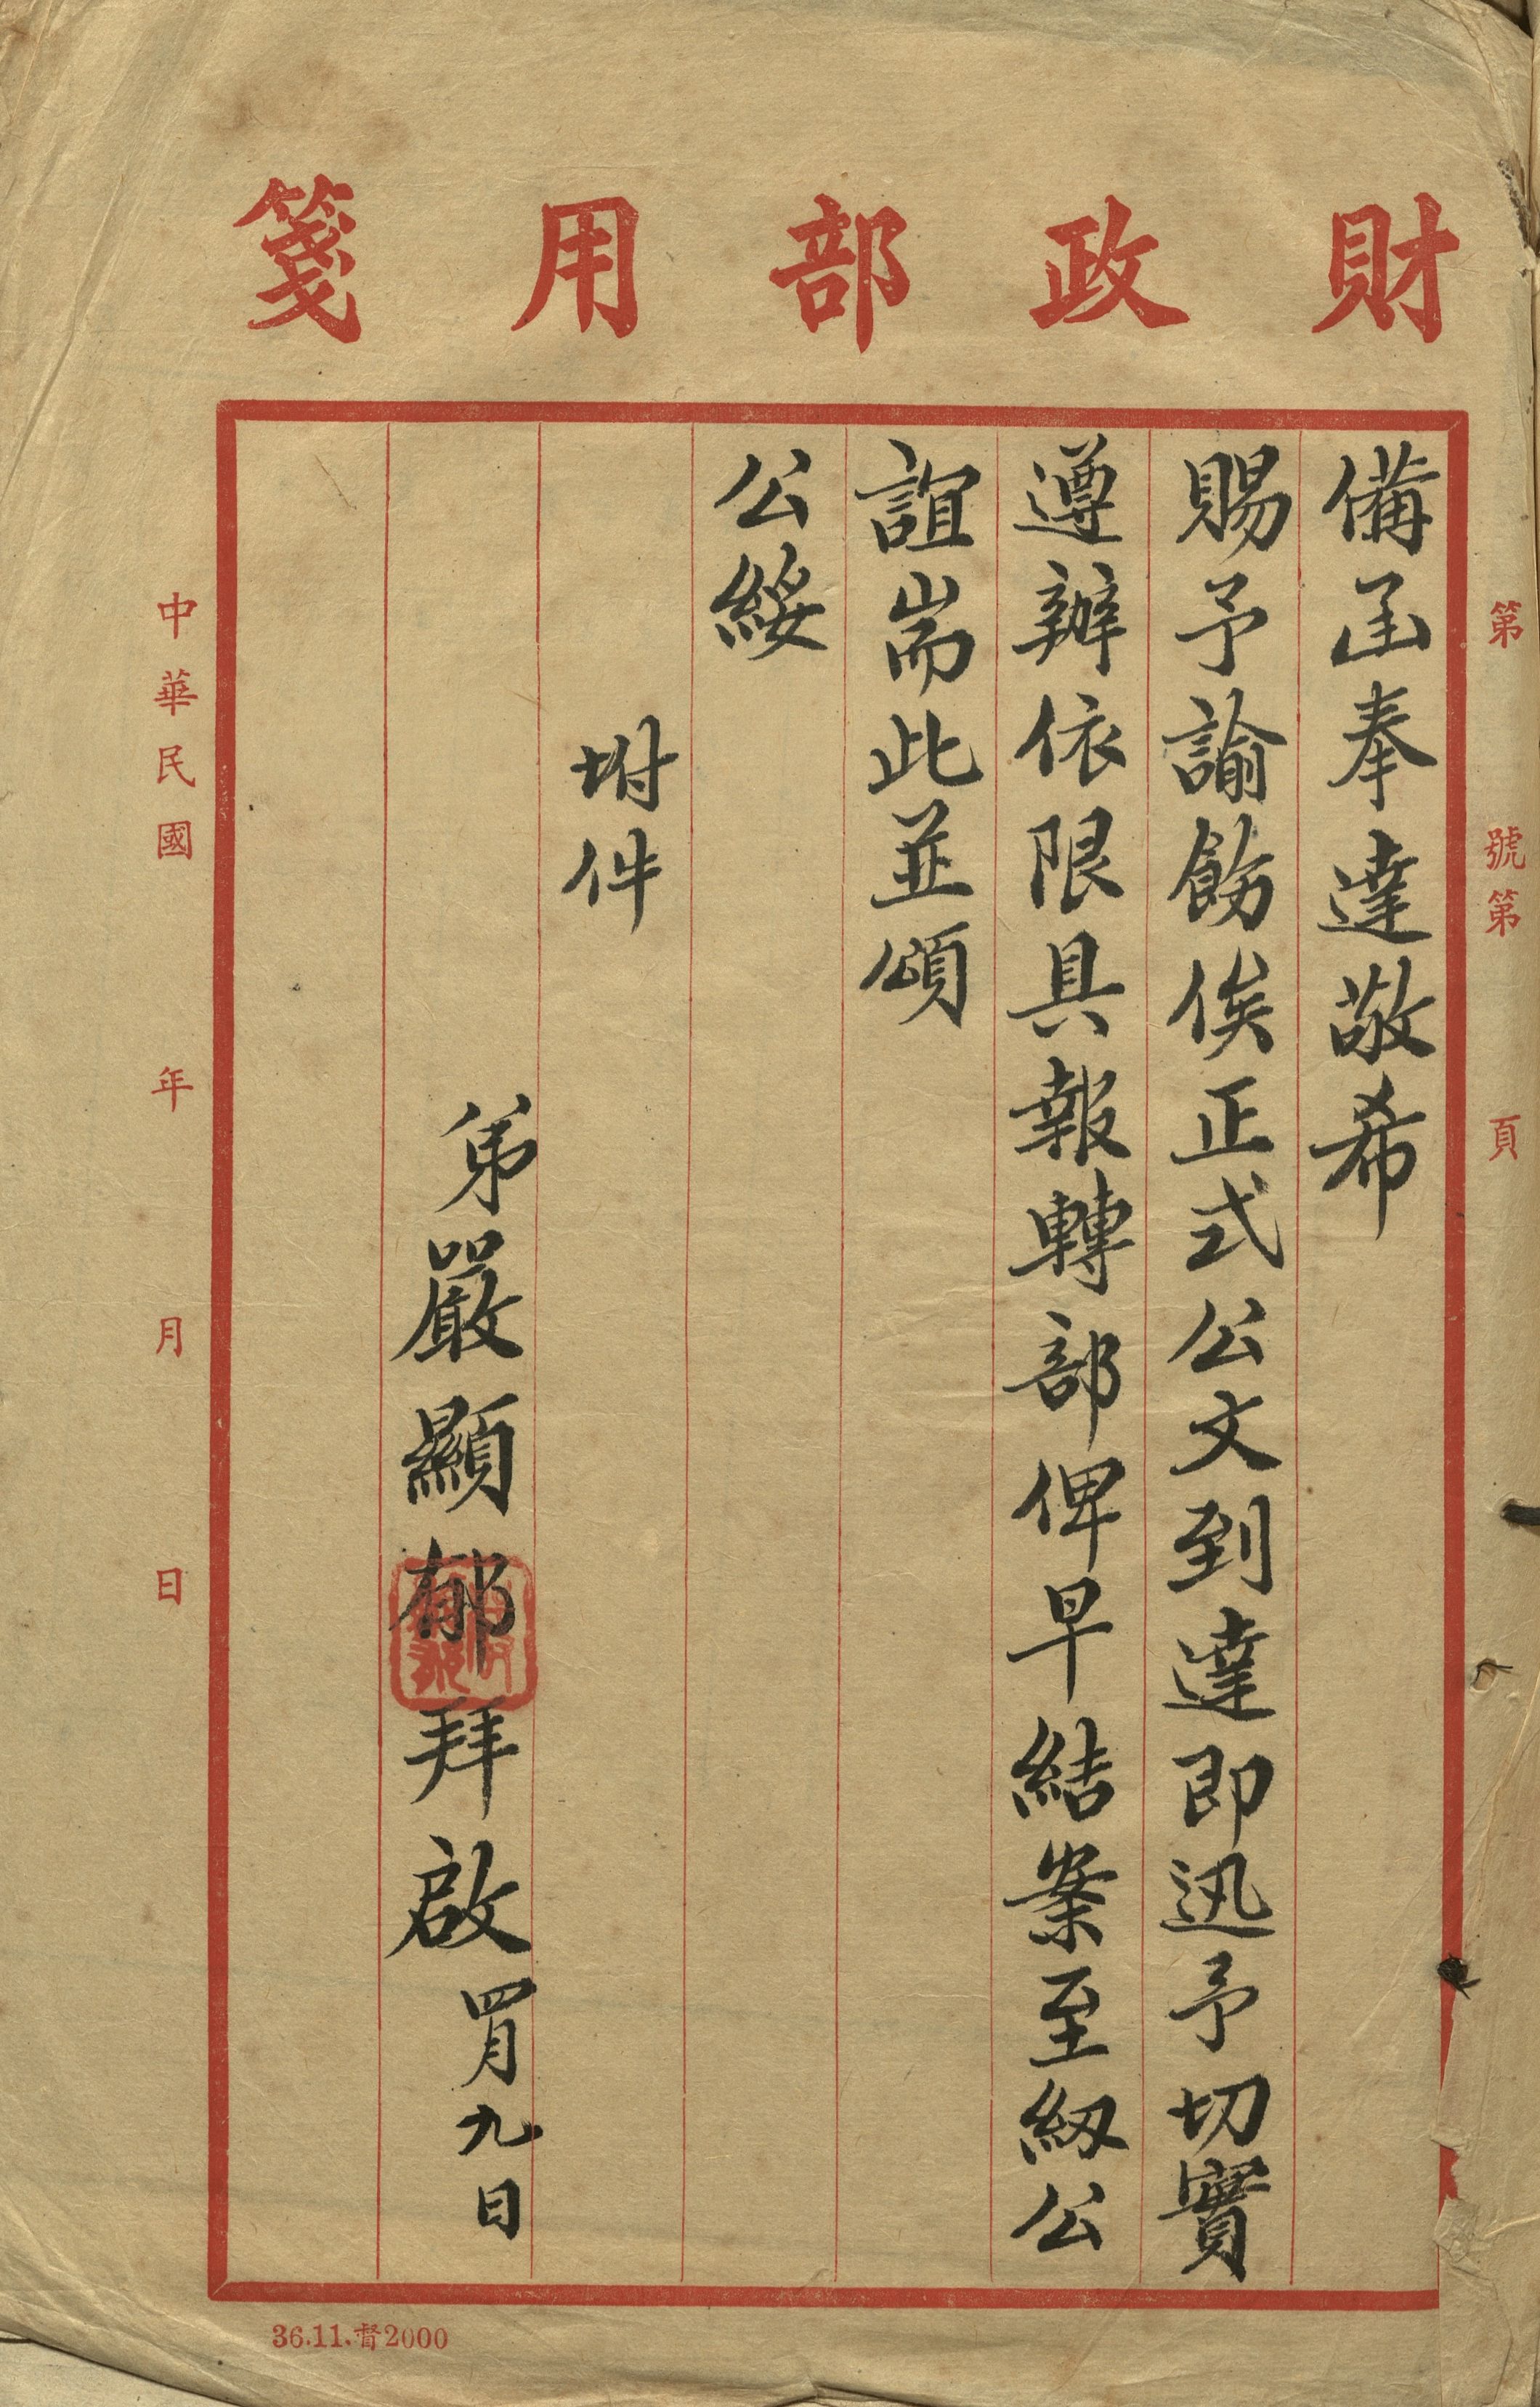 財政部用箋
第 號第 頁
備函奉達敬希
賜予諭飭俟正式公文到達即迅予切實
遵辦依限具報轉部俾早結案至紉公
誼耑此並頌
公綏
坿件
弟嚴顯郁拜啟 四月九日
中華民國 年 月 日
36.11.督2000